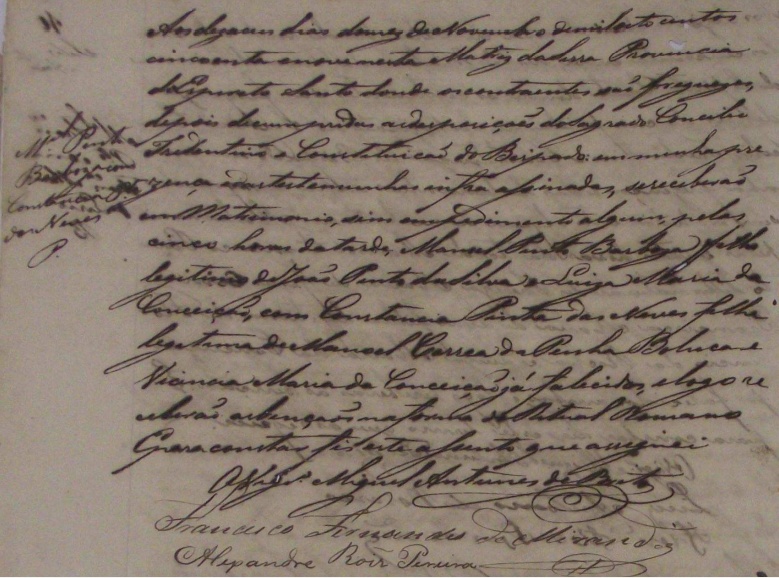 Mel Pinto
Barboza com
Constancia
das Neves
P.
Aos dezaceis dias do mez de Novembro de mil oito centos
cincoenta e nove nesta Matriz da Serra Provincia
do Espirito Santo donde os contraentes são freguezes,
depois de cumpridas as despoziçoens do Sagrado Concilio
Tridentino e Constituicaõ do Bispado: em minha pre
zença e das testemunhas infra assinadas, se receberaõ
em Matrimonio, sem empedimento algum, pelas
cinco horas da tarde, Manoel Pinto Barboza filho
legitimo de Joaõ Pinto da Silva e Luiza Maria da
Conceição, com Constancia Penha das Neves filha
legitima de Manoel Correa da Penha e
Vicencia Maria da Conceição já falicidos, e logo re
ceberaõ as bençaõs na forma do Ritual Romano
E para constar fis este assento que assignei
O Vigro Miguel Antunes de Brito
Francisco Fernandes de Miranda
Alexandre Roiz Pereira